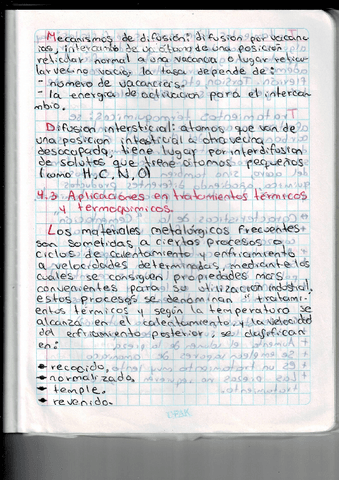 Mecanismos de difusión: difusión por vacan
cias, intercambio de un átomo de una posición
reticular normal a una vacancia o lugar reticu-
lar vecino vacio, la tasa depende de:
- número de vacancias.
- la energía de activación para el intercam
bio.
Difusion intersticial: atomos que van de
una posicion intersticial a otra vecina
desocupada, tiene lugar por interdifusion
de solutos que tiene átomos pequeños
(como H, C, N, O)
4.3 Aplicaciones en tratamientos térmicos
y termoquimicos.
Los materiales metalúrgicos frecuentes
son sometidas, a ciertos procesos o
ciclos de calentamiento y enfriamiento
a velocidades determinadas, mediante los
cuales se consiguen propiedades mas
convenientes para su utilización industrial.
estos procesos se denominan "tratami-
entos térmicos y según la temperatura se
alcanza en el calentamiento y la velocidad
del enfriamiento posterior, se clasifican
en:
recocido.
normalizado.
temple.
revenido.